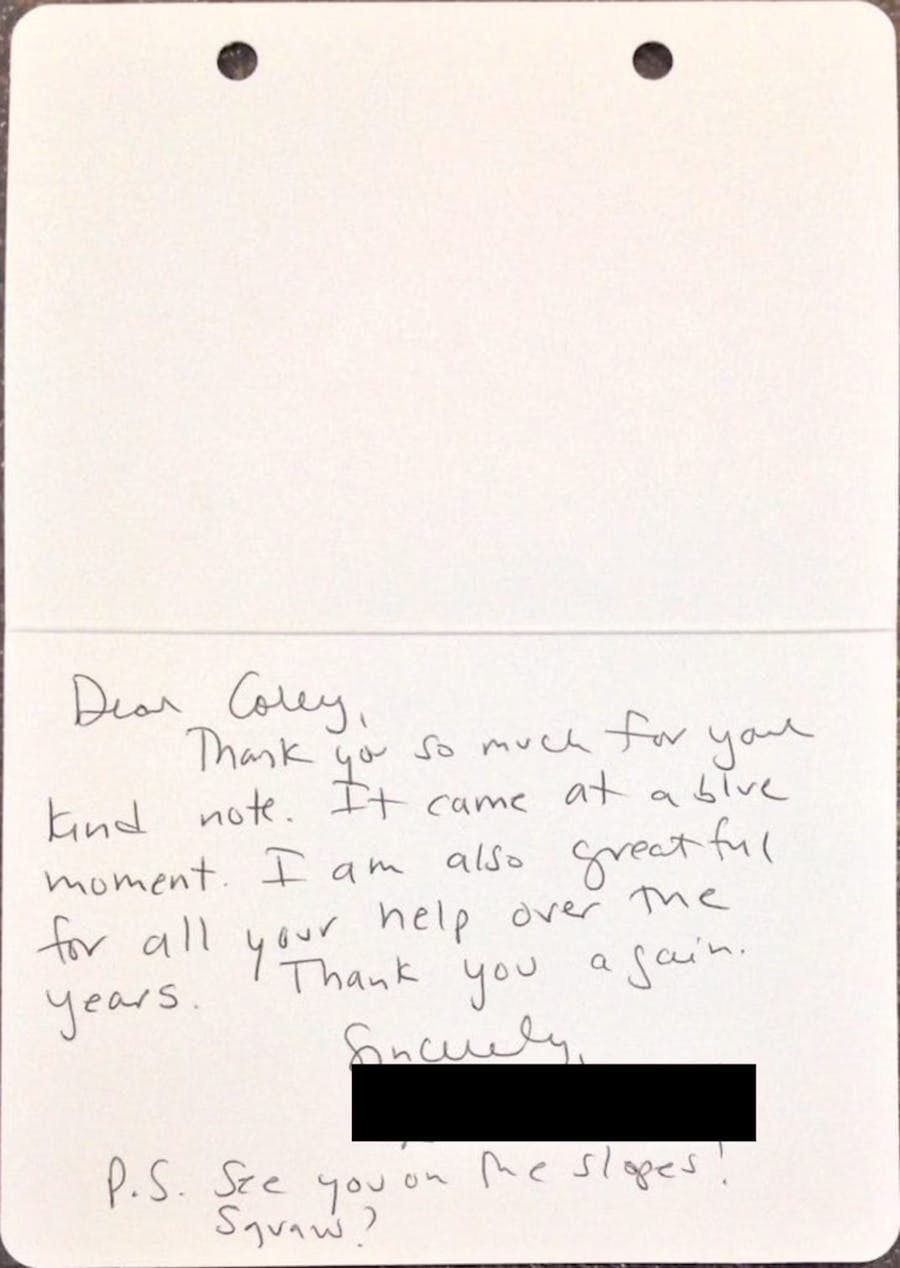 Dear Coley,
Thank you so much for your
kind note. It came at a blue
moment. I am also greatful
for all your help over the
years. Thank you again.
Sincerely,
P.S. See you on the slopes!
Squaw?